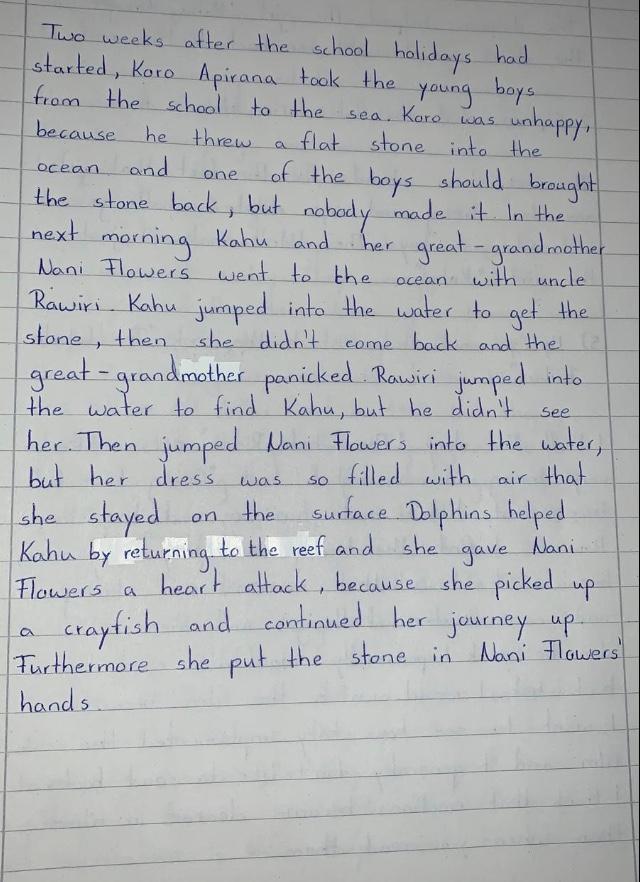 Two weeks after the school holidays had
started, Koro Apirana took the young boys
from the school to the sea. Koro was unhappy,
because he threw a flat stone into the
ocean and one of the boys should brought
the stone back, but nobody made it. In the
next morning Kahu and her great-grandmother
Nani Flowers went to the ocean with uncle
Rawiri. Kahu jumped into the water to get the
stone, then she didn't come back and the
great-grandmother panicked. Rawiri jumped into
the water to find Kahu, but he didn't see
her. Then jumped Nani Flowers into the water,
but her dress was so filled with air that
she stayed on the surface. Dolphins helped
Kahu by returning to the reef and she gave Nani
Flowers a heart attack, because she picked up
a crayfish and continued her journey up.
Furthermore she put the stone in Nani Flowers'
hands.